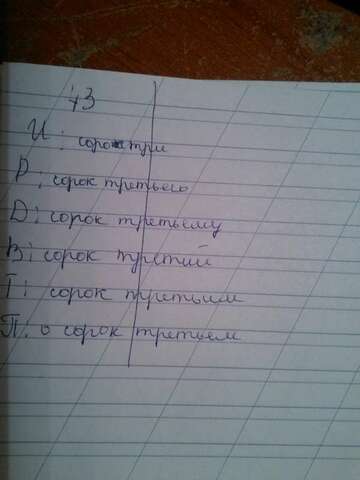 43
И: сорок три
Р: сорок третьего
Д: сорок третьему
В: сорок третий
Т: сорок третьим
П: о сорок третьем